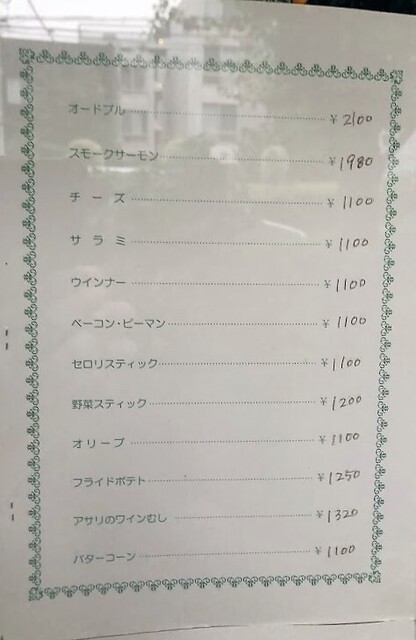 オードブル ¥2100
スモークサーモン ¥1980
チーズ ¥1100
サラミ ¥1100
ウインナー ¥1100
ベーコン・ピーマン ¥1100
セロリスティック ¥1100
野菜スティック ¥1200
オリーブ ¥1100
フライドポテト ¥1250
アサリのワインむし ¥1320
バターコーン ¥1100